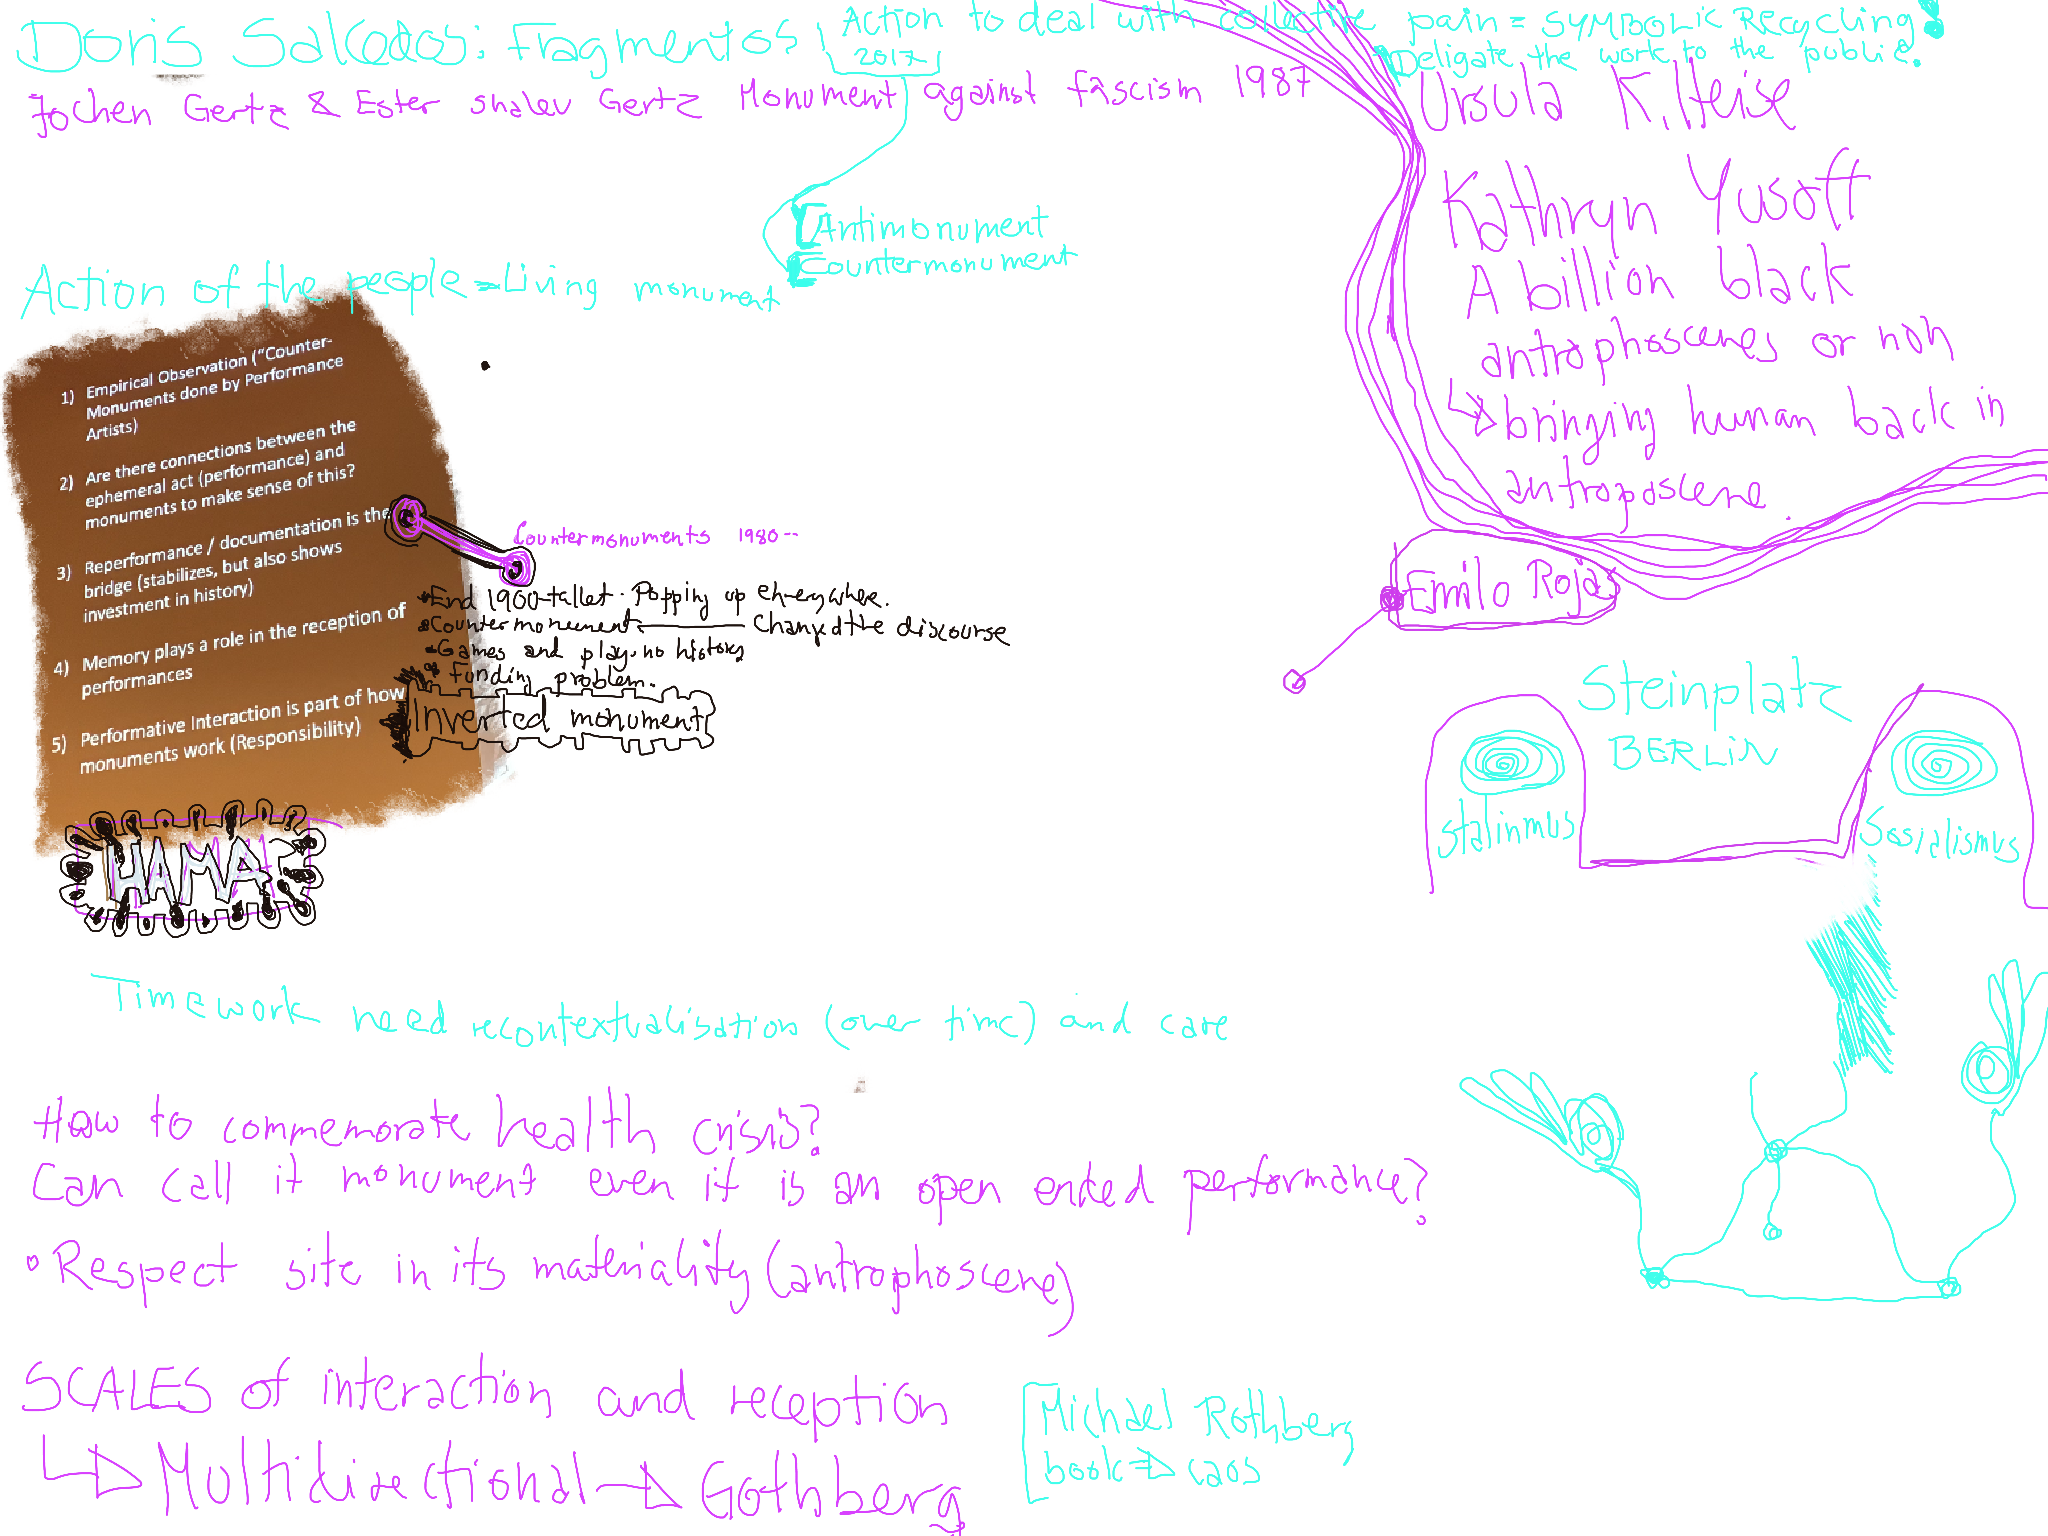 Doris Salcedos: Fragmentos
Action to deal with collective pain = SYMBOLIC Recycling!
2017
Deligate the work to the public.
Jochen Gertz & Ester shalev Gertz Monument against fascism 1987
Ursula K. Heise
Kathryn Yusoff
A billion black
antrophoscenes or non
bringing human back in
antroposcene
Antimonument
Countermonument
Action of the people = Living monument
1) Empirical Observation ("Counter-
Monuments done by Performance
Artists)
2) Are there connections between the
ephemeral act (performance) and
monuments to make sense of this?
3) Reperformance / documentation is the
bridge (stabilizes, but also shows
investment in history)
4) Memory plays a role in the reception of
performances
5) Performative Interaction is part of how
monuments work (Responsibility)
Countermonuments 1980--
End 1900-tallet. Popping up ehverywhere.
Countermonument Changed the discourse
Games and play. no history
Funding problem.
Inverted monument
Emilo Rojas
Steinplatz
BERLIN
Stalinmus
Sosialismus
HAMA
Timework need recontextualisation (over time) and care
How to commemorate health crisis?
Can call it monument even it is an open ended performance?
Respect site in its materiality (antrophoscene)
SCALES of interaction and reception
Multidirectional → Gothberg
Michael Rothberg
book → caos